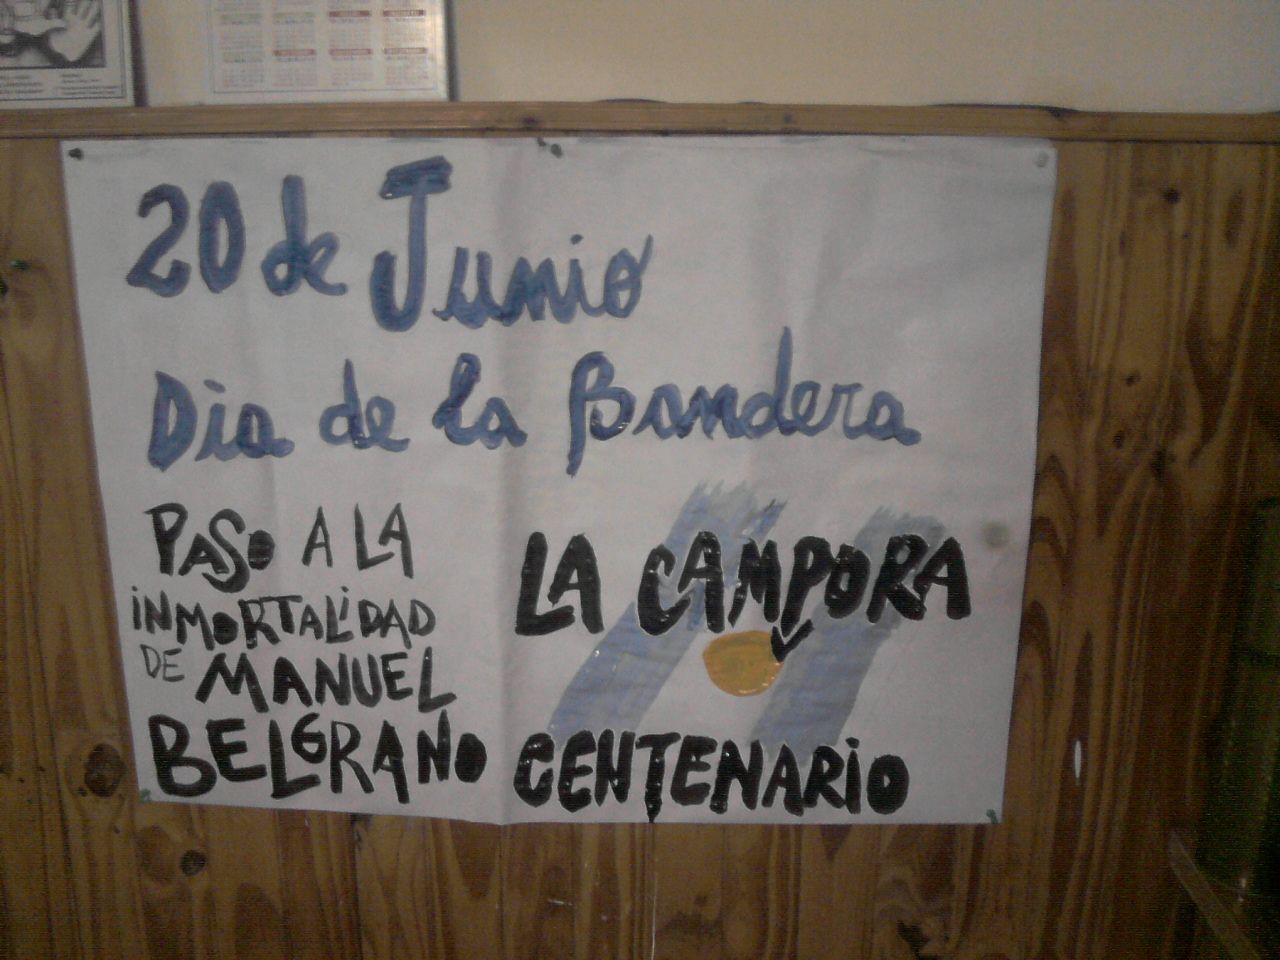 20 de Junio
Dia de la Bandera
PASO A LA
iNMORTALiDAD
DE MANUEL
BELGRANO
LA CAMPORA
CENTENARiO